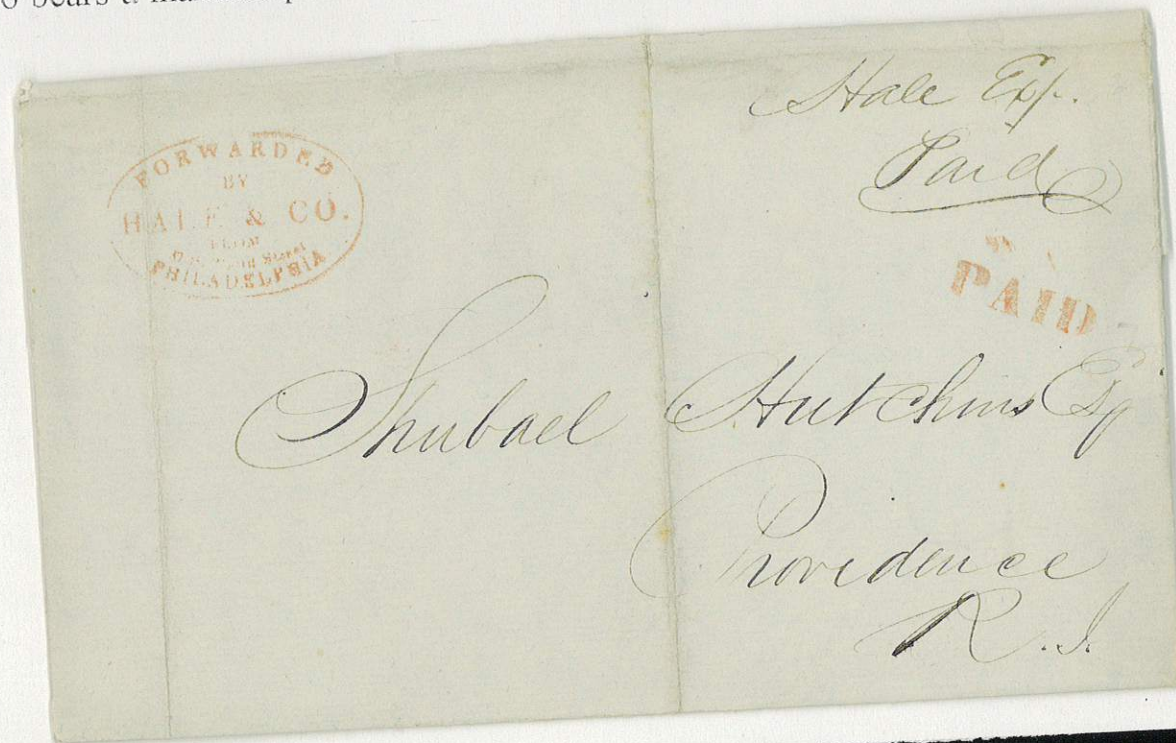 bears a
FORWARDED
BY
HALE & CO.
FROM
Street
PHILADELPHIA
Hale Exp.
Paid
PAID
Shubael Hutchins Esq
Providence
R.I.